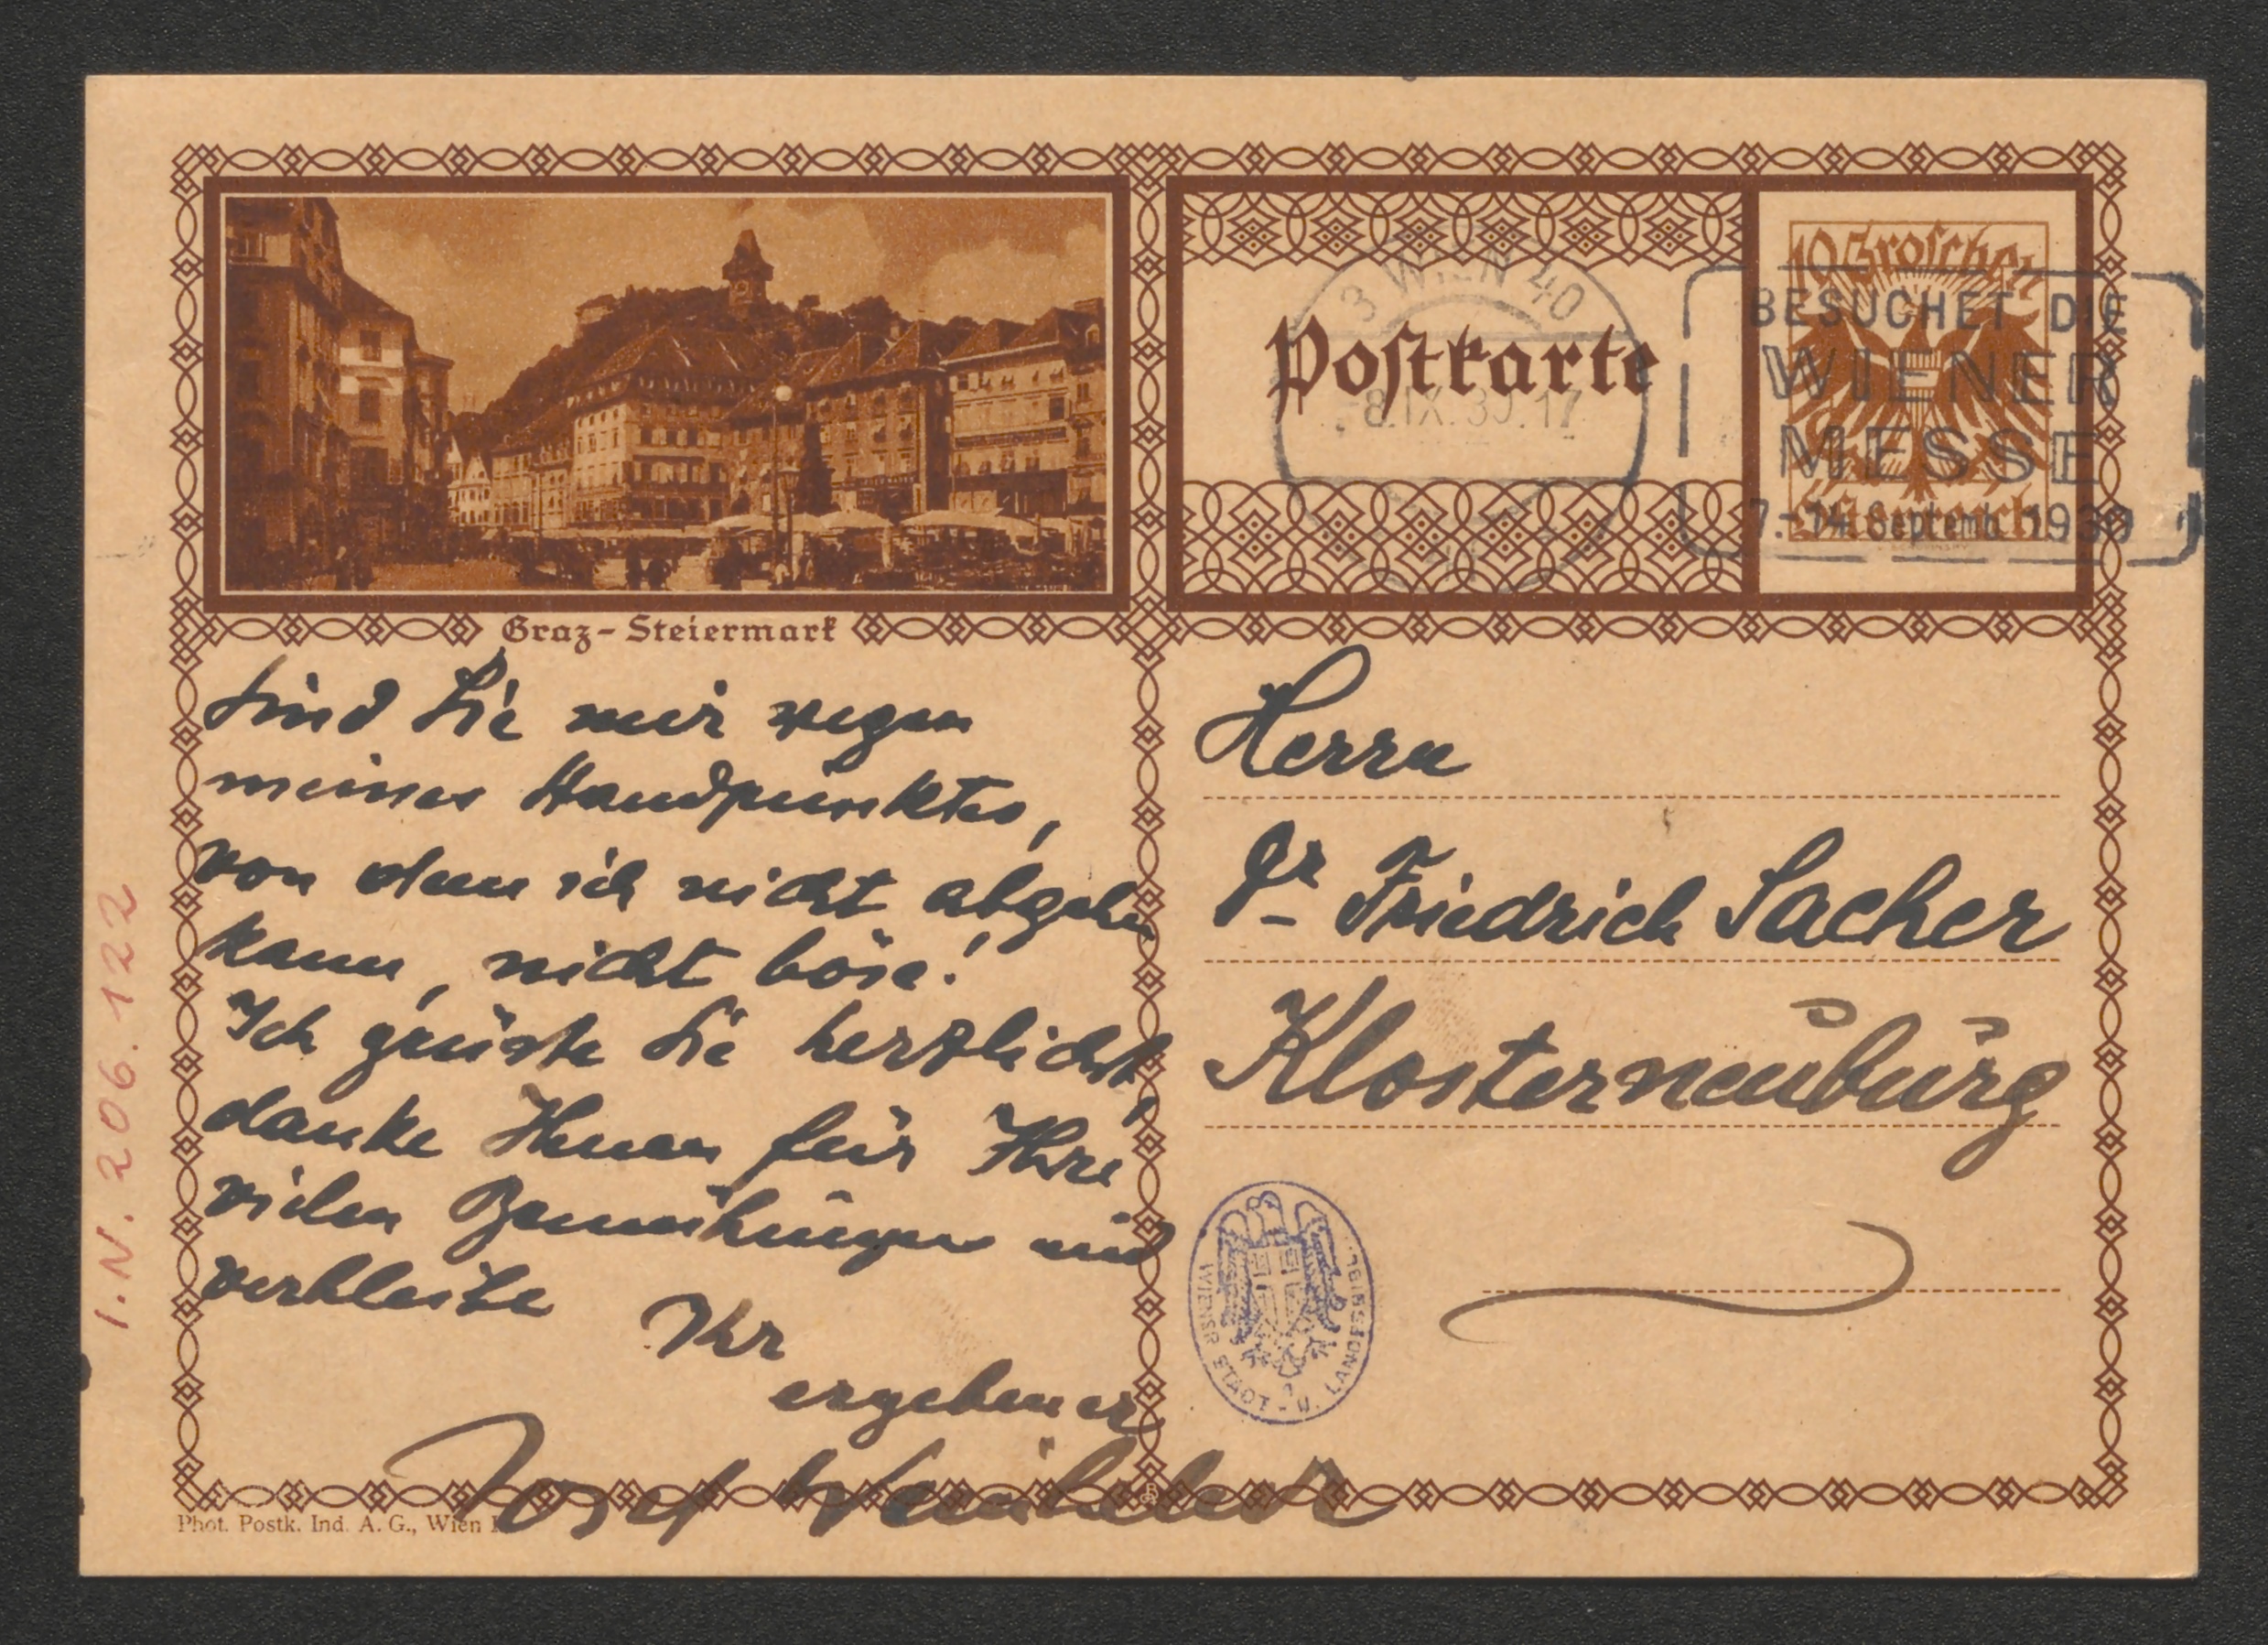 Graz-Steiermark
Sind Sie mir wegen
meines Standpunktes,
von dem ich nicht abgehen
kann, nicht böse!
Ich grüsse Sie herzlichst,
danke Ihnen für Ihre
vielen Bemühungen und
verbleibe Ihr
ergebener
Josef Weinheber
Phot. Postk. Ind. A. G., Wien
I.N. 206.122
Postkarte
10 Groschen
Österreich
3 WIEN 40
8.IX.30.17
BESUCHET DIE
WIENER
MESSE
7.-14. Septemb. 1930
Herrn
Dr Friedrich Sacher
Klosterneuburg
WIENER STADT- U. LANDESBIBL.